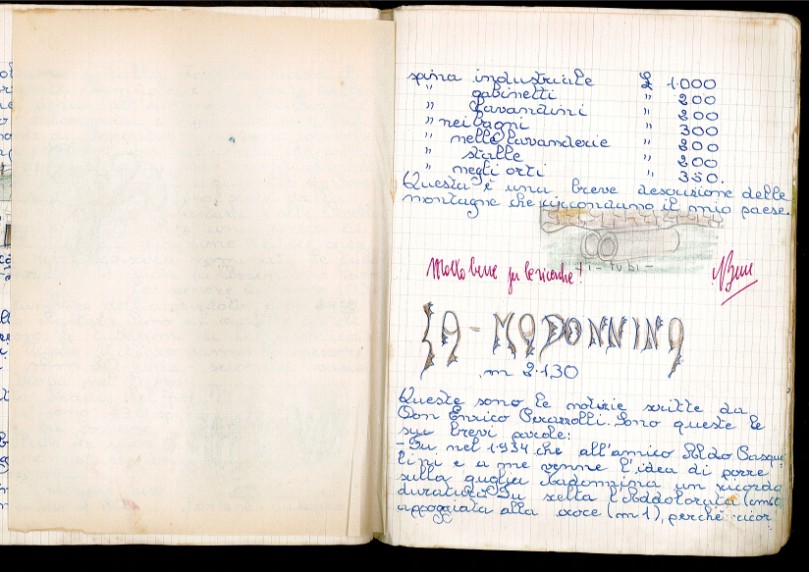 spina industriale £ 1.000
" gabinetti " 200
" lavandini " 200
" nei bagni " 300
" nelle lavanderie " 200
" stalle " 200
" negli orti " 350.
Questa è una breve descrizione delle
montagne che circondano il mio paese.
- I - tubi -
Molto bene per le ricerche!
LA - MADONNINA
m 2.130
Queste sono le notizie scritte da
Don Enrico. Sono queste le
sue brevi parole:
- Fu nel 1934 che all'amico Aldo Pasqua
lini e a me venne l'idea di porre
sulla guglia Madonnina un ricordo
duraturo. Fu scelta l'Addolorata
appoggiata alla croce (m 1), perché ricor